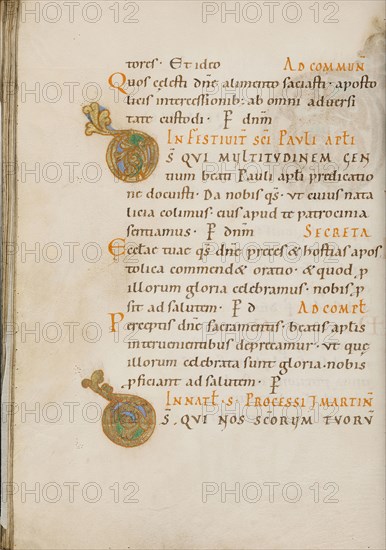 tores. Et ideo AD COMMUN
Quos celesti dñe alimento saciasti. aposto
licis intercessionib; ab omni adversi
tate custodi. P dnm
IN FESTIVIT SCI PAULI APLI
DS QUI MULTITUDINEM GEN
tium beati Pauli apli predicatio
ne docuisti. Da nobis qs. ut cuius nata
licia colimus. eius apud te patrocinia
sentiamus. P dnm SECRETA
Eccłae tuae qs dñe preces & hostias apos
tolica commend& oratio. & quod p
illorum gloria celebramus. nobis p
sit ad salutem. P d AD COMPL
Perceptis dñe sacramentis. beatis aplis
intervenientibus deprecamur. ut que
illorum celebrata sunt gloria. nobis
pficiant ad salutem. P
IN NAT S. PROCESSI & MARTIN
DS. QUI NOS SCORUM TUORU
PHOTO 12